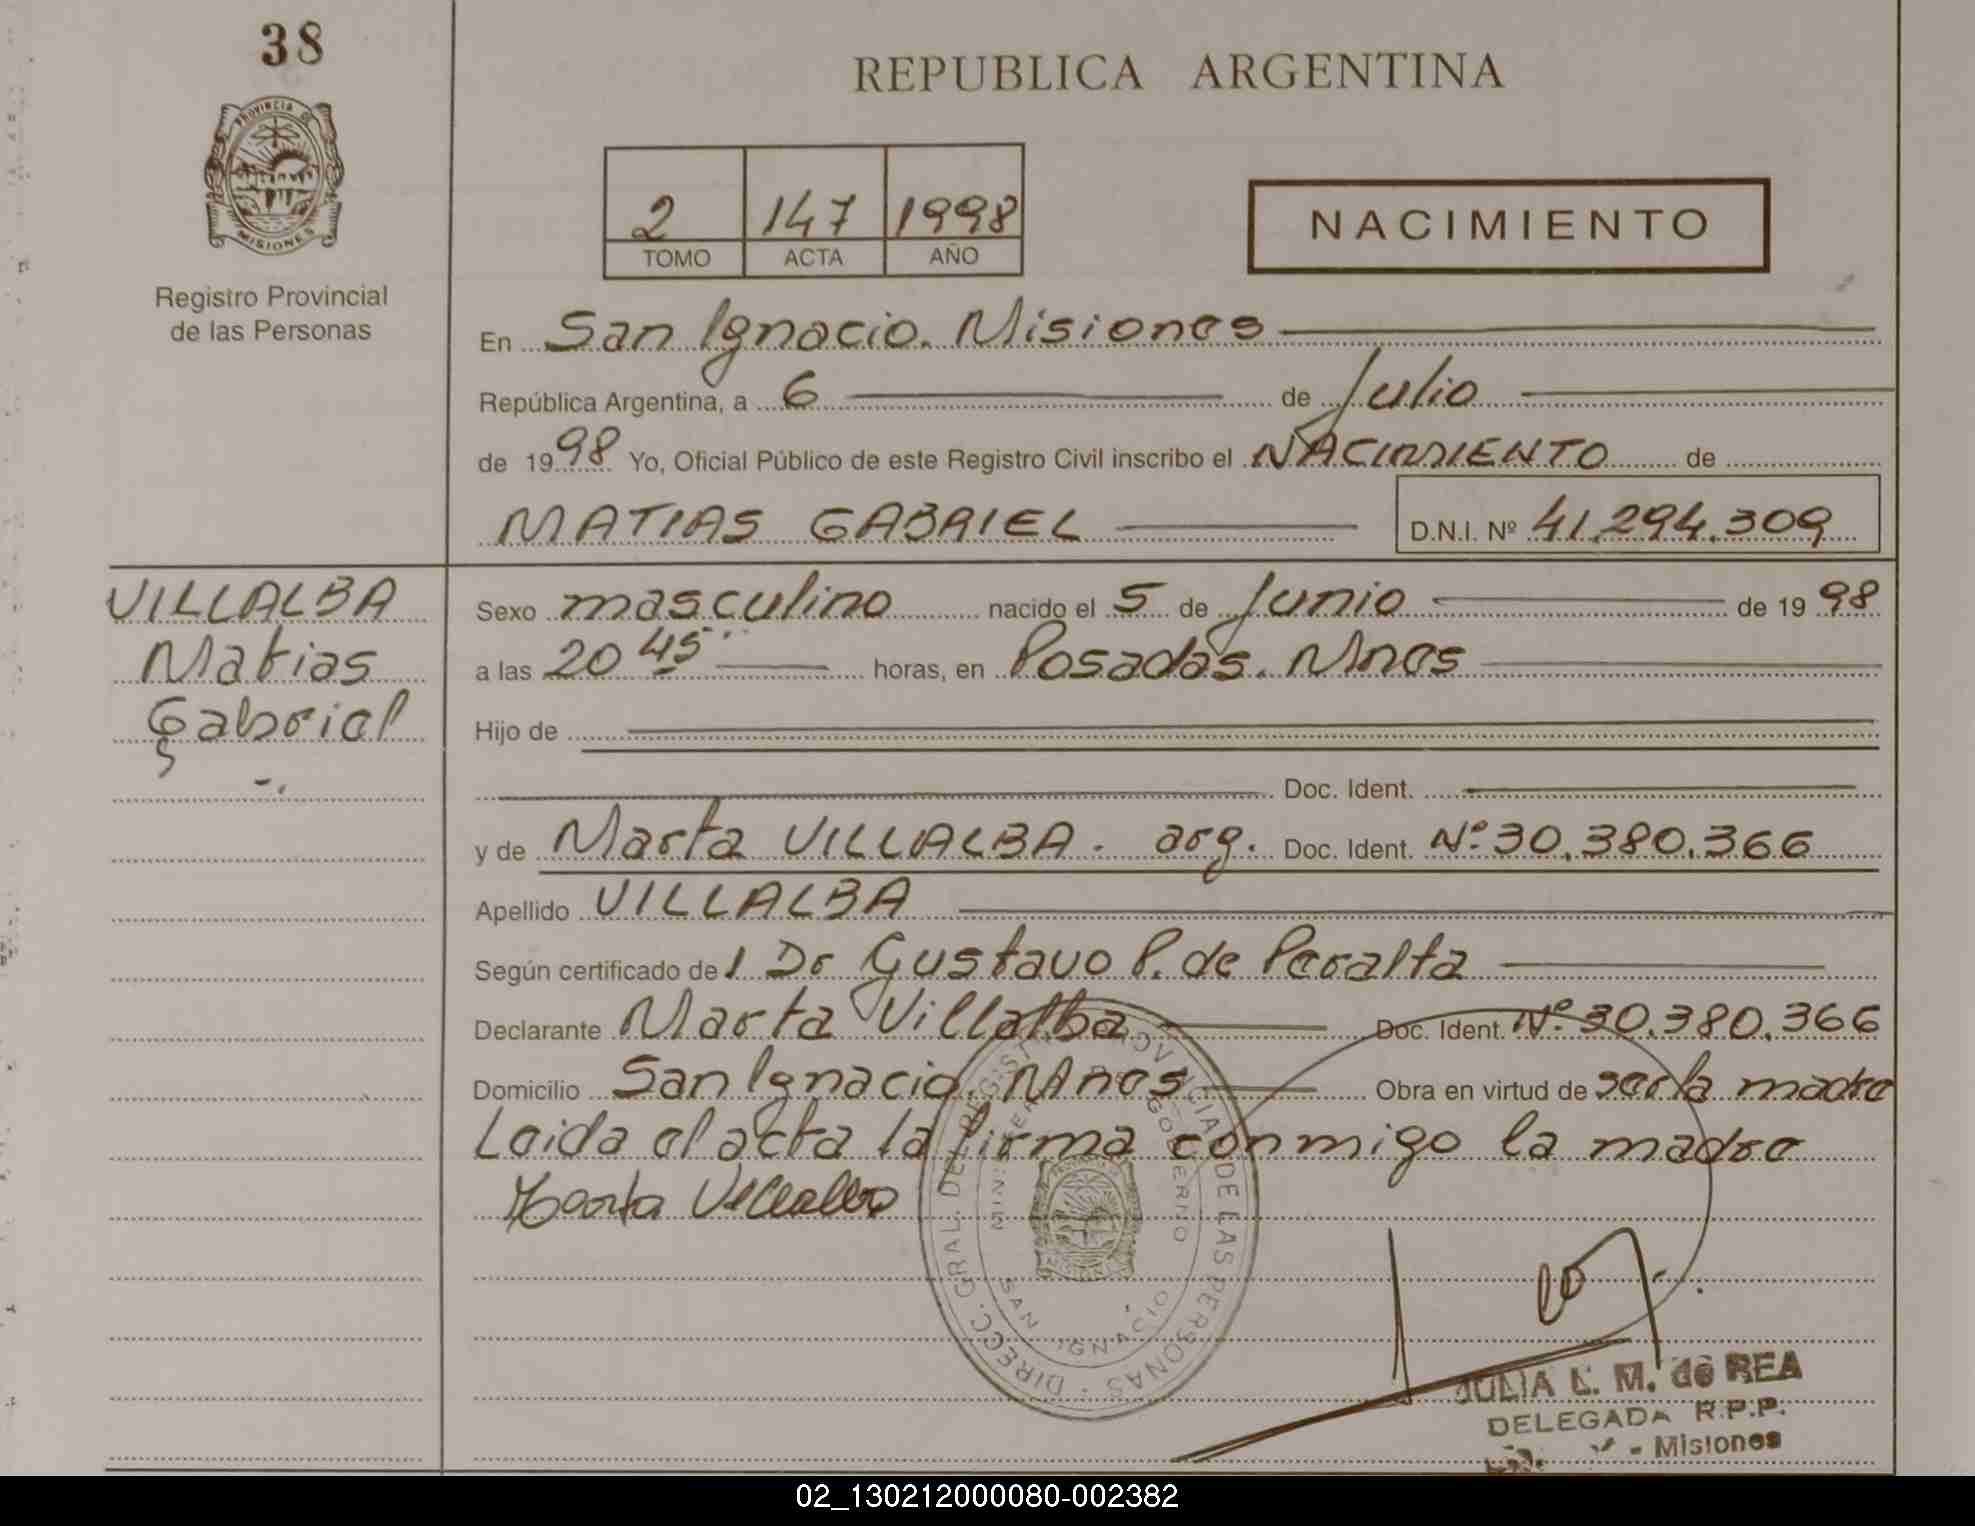 38
REPUBLICA ARGENTINA
PROVINCIA DE
MISIONES
Registro Provincial
de las Personas
2 147 1998
TOMO ACTA AÑO
NACIMIENTO
En San Ignacio. Misiones
República Argentina, a 6 de Julio
de 1998 Yo, Oficial Público de este Registro Civil inscribo el NACIMIENTO de
MATIAS GABRIEL D.N.I. Nº 41.294.309
VILLALBA
Matias
Gabriel
Sexo masculino nacido el 5 de Junio de 1998
a las 20 45 horas, en Posadas. Mnes
Hijo de
Doc. Ident.
y de Marta VILLALBA. arg. Doc. Ident. Nº 30.380.366
Apellido VILLALBA
Según certificado del Dr Gustavo P. de Peralta
Declarante Marta Villalba Doc. Ident. Nº 30.380.366
Domicilio San Ignacio. Mnes Obra en virtud de ser la madre
Leida el acta la firma conmigo la madre
Marta Villalba
DIRECC. GRAL. DEL REGISTRO PROVINCIAL DE LAS PERSONAS
GOBIERNO
SAN IGNACIO
JULIA L. M. de REA
DELEGADA R.P.P.
- Misiones
02_130212000080-002382